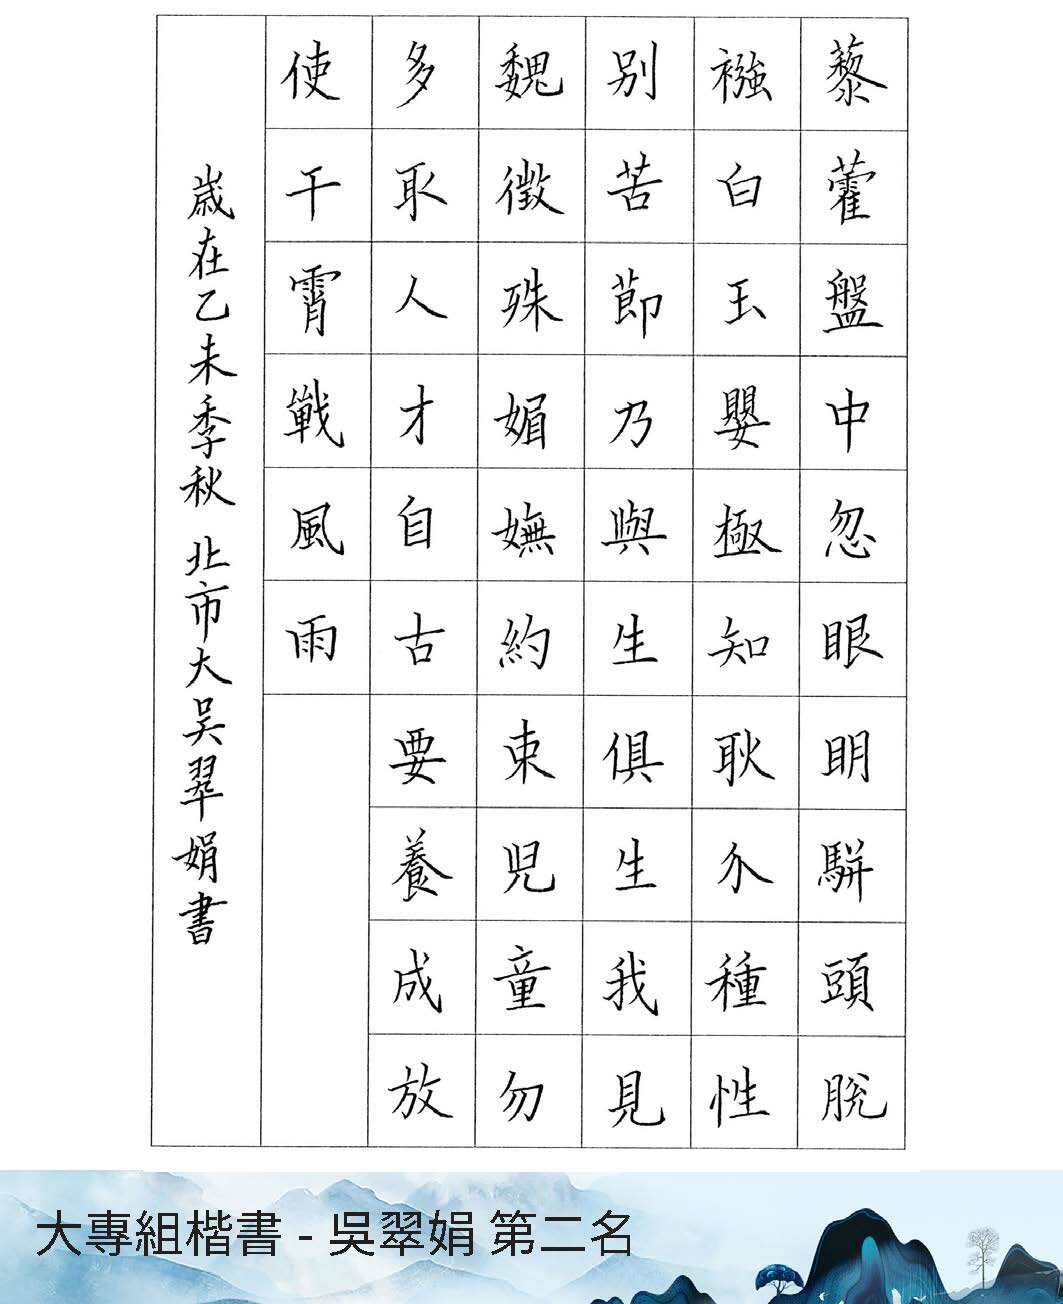 藜藿盤中忽眼明駢頭脫
襁白玉嬰極知耿介種性
別苦節乃與生俱生我見
魏徵殊媚嫵約束兒童勿
多取人才自古要養成放
使干霄戰風雨
歲在乙未季秋 北市大吳翠娟書
大專組楷書 - 吳翠娟 第二名